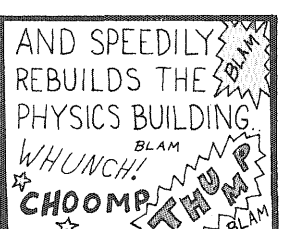 AND SPEEDILY
BLAM
REBUILDS THE
PHYSICS BUILDING.
BLAM
WHUNCH!
THUMP
CHOOMP
BLAM